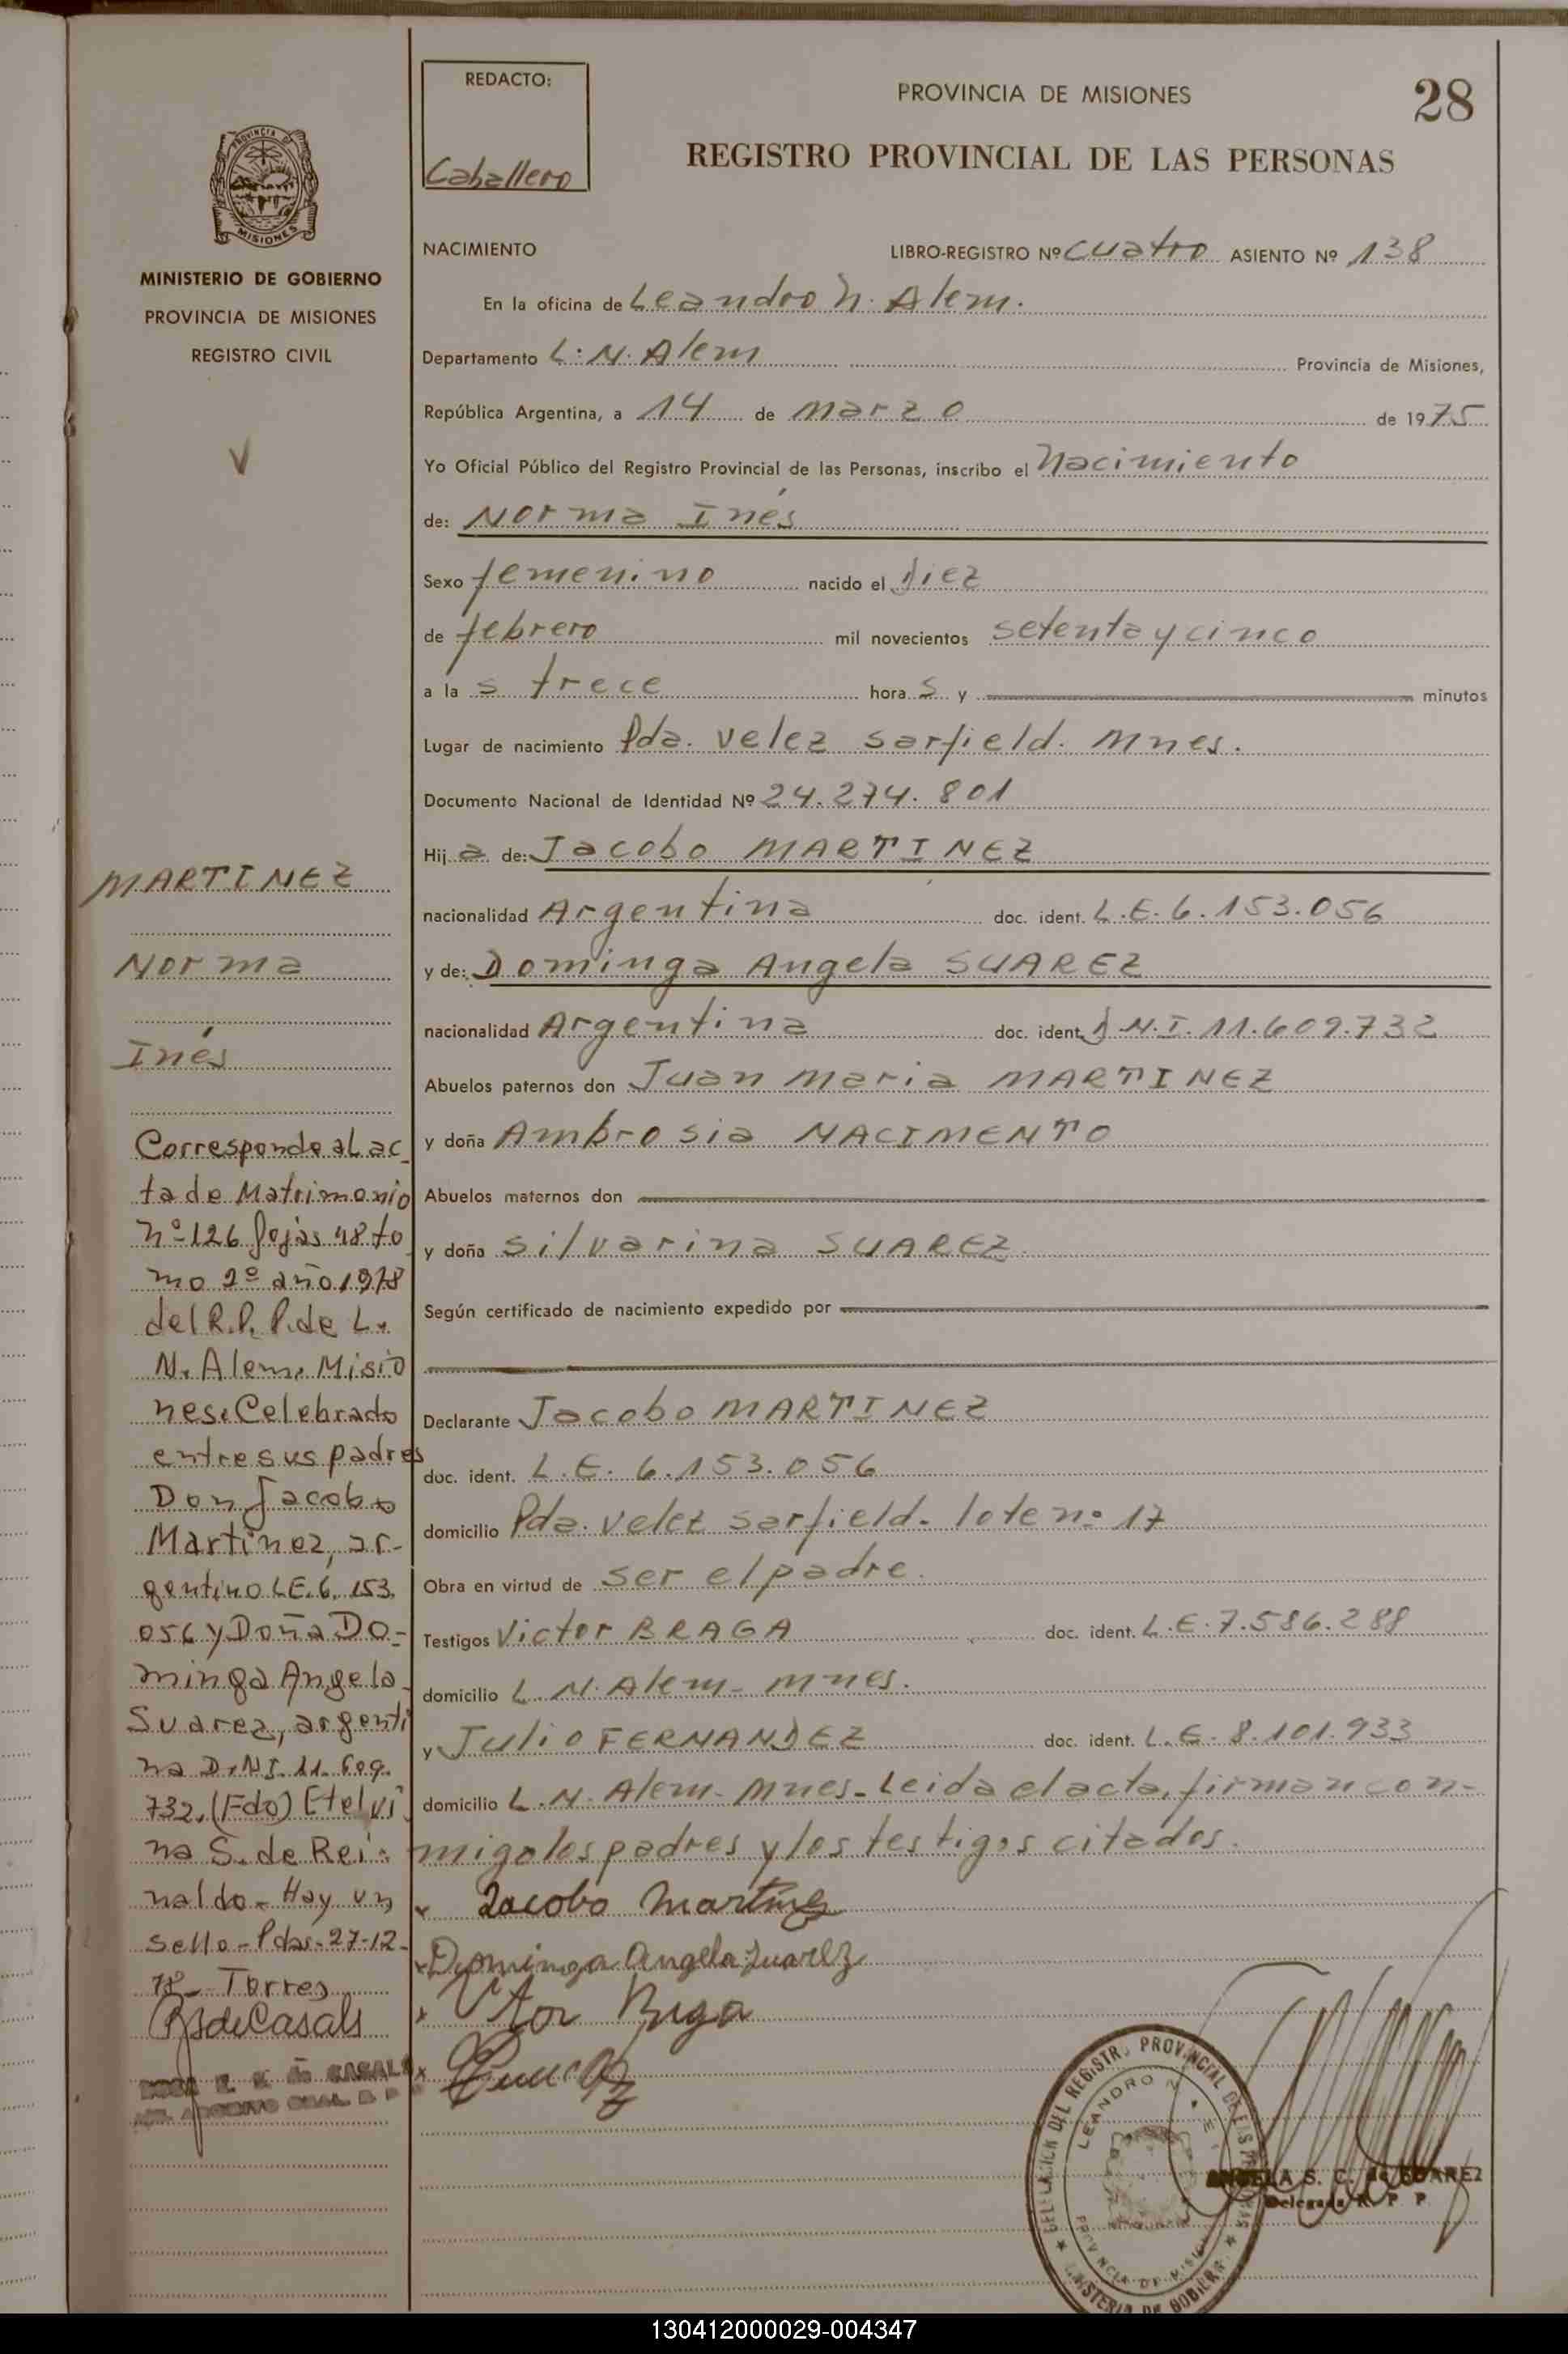 REDACTO:
Caballero
PROVINCIA DE MISIONES
28
REGISTRO PROVINCIAL DE LAS PERSONAS
PROVINCIA DE
MISIONES
MINISTERIO DE GOBIERNO
PROVINCIA DE MISIONES
REGISTRO CIVIL
NACIMIENTO LIBRO-REGISTRO Nº cuatro ASIENTO Nº 138
En la oficina de Leandro N. Alem.
Departamento L. N. Alem Provincia de Misiones,
República Argentina, a 14 de marzo de 1975
Yo Oficial Público del Registro Provincial de las Personas, inscribo el Nacimiento
de: Norma Inés
Sexo femenino nacido el diez
de febrero mil novecientos setenta y cinco
a las trece horas y minutos
Lugar de nacimiento Pda. Velez Sarfield. Mnes.
Documento Nacional de Identidad Nº 24.274.801
Hija de: Jacobo MARTINEZ
nacionalidad Argentina doc. ident. L.E. 6.153.056
y de: Dominga Angela SUAREZ
nacionalidad Argentina doc. ident. D.N.I. 11.609.732
Abuelos paternos don Juan Maria MARTINEZ
y doña Ambrosia NACIMENTO
Abuelos maternos don
y doña Silvarina SUAREZ.
Según certificado de nacimiento expedido por
Declarante Jacobo MARTINEZ
doc. ident. L.E. 6.153.056
domicilio Pda. Velez Sarfield. lote nº 17
Obra en virtud de ser el padre.
Testigos Victor BRAGA doc. ident. L.E. 7.586.288
domicilio L. N. Alem - Mnes.
y Julio FERNANDEZ doc. ident. L.E. 8.101.933
domicilio L. N. Alem - Mnes - Leida el acta, firman con-
migo los padres y los testigos citados.
x Jacobo Martinez
x Dominga Angela Suarez
x
x
MARTINEZ
Norma
Inés
Corresponde al ac_
ta de Matrimonio
nº 126 fojas 48 to
mo 2º año 1978
del R.P.P. de L.
N. Alem. Misio
nes. Celebrado
entre sus padres
Don Jacobo
Martinez, ar-
gentino L.E. 6.153.
056 y Doña DO-
minga Angela
Suarez, argenti
na D.N.I. 11.609.
732. (Fdo) Etelvi
na S. de Rei-
naldo - Hay un
sello - Pdas. 27-12-
78 - Torres
RSdeCasals
ANGELA S. C. de SUAREZ
Delegada R. P. P.
DELEGACION DEL REGISTRO PROVINCIAL DE LAS PERSONAS
LEANDRO N.
PROVINCIA DE MISIONES
MINISTERIO DE GOBIERNO
130412000029-004347